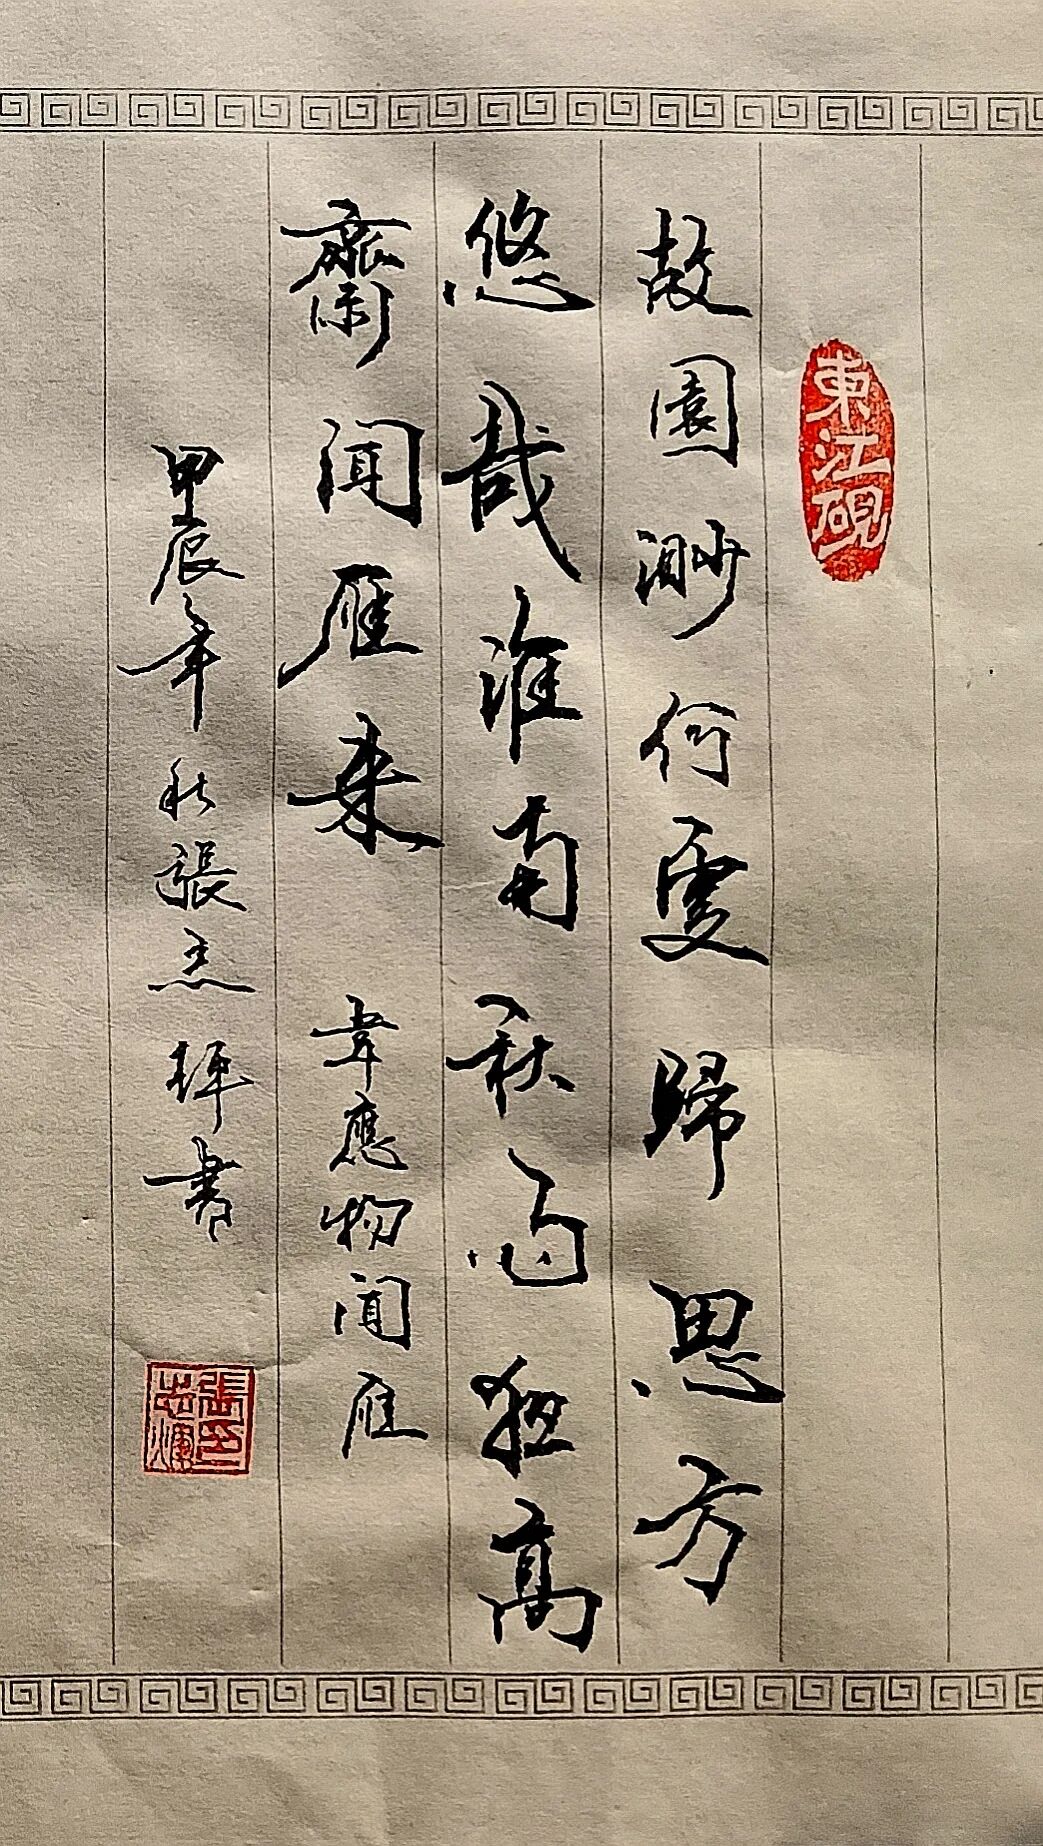 東江硯
故園渺何處歸思方
悠哉淮南秋雨夜高
齋聞雁來 韋應物聞雁
甲辰年秋張志煇書
張印志煇